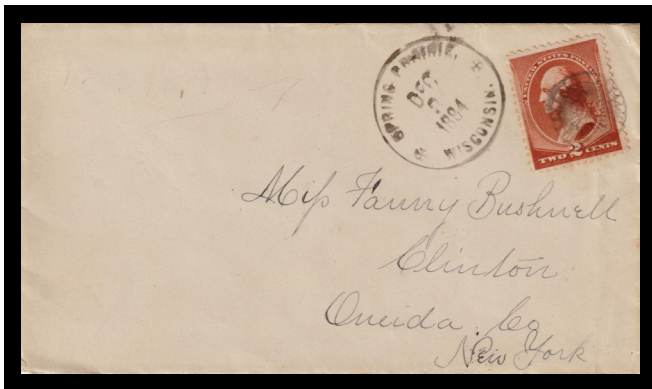 SPRING PRAIRIE, WISCONSIN.
DEC
1884
UNITED STATES POSTAGE
TWO 2 CENTS
Miss Fanny Bushnell
Clinton
Oneida Co
New York